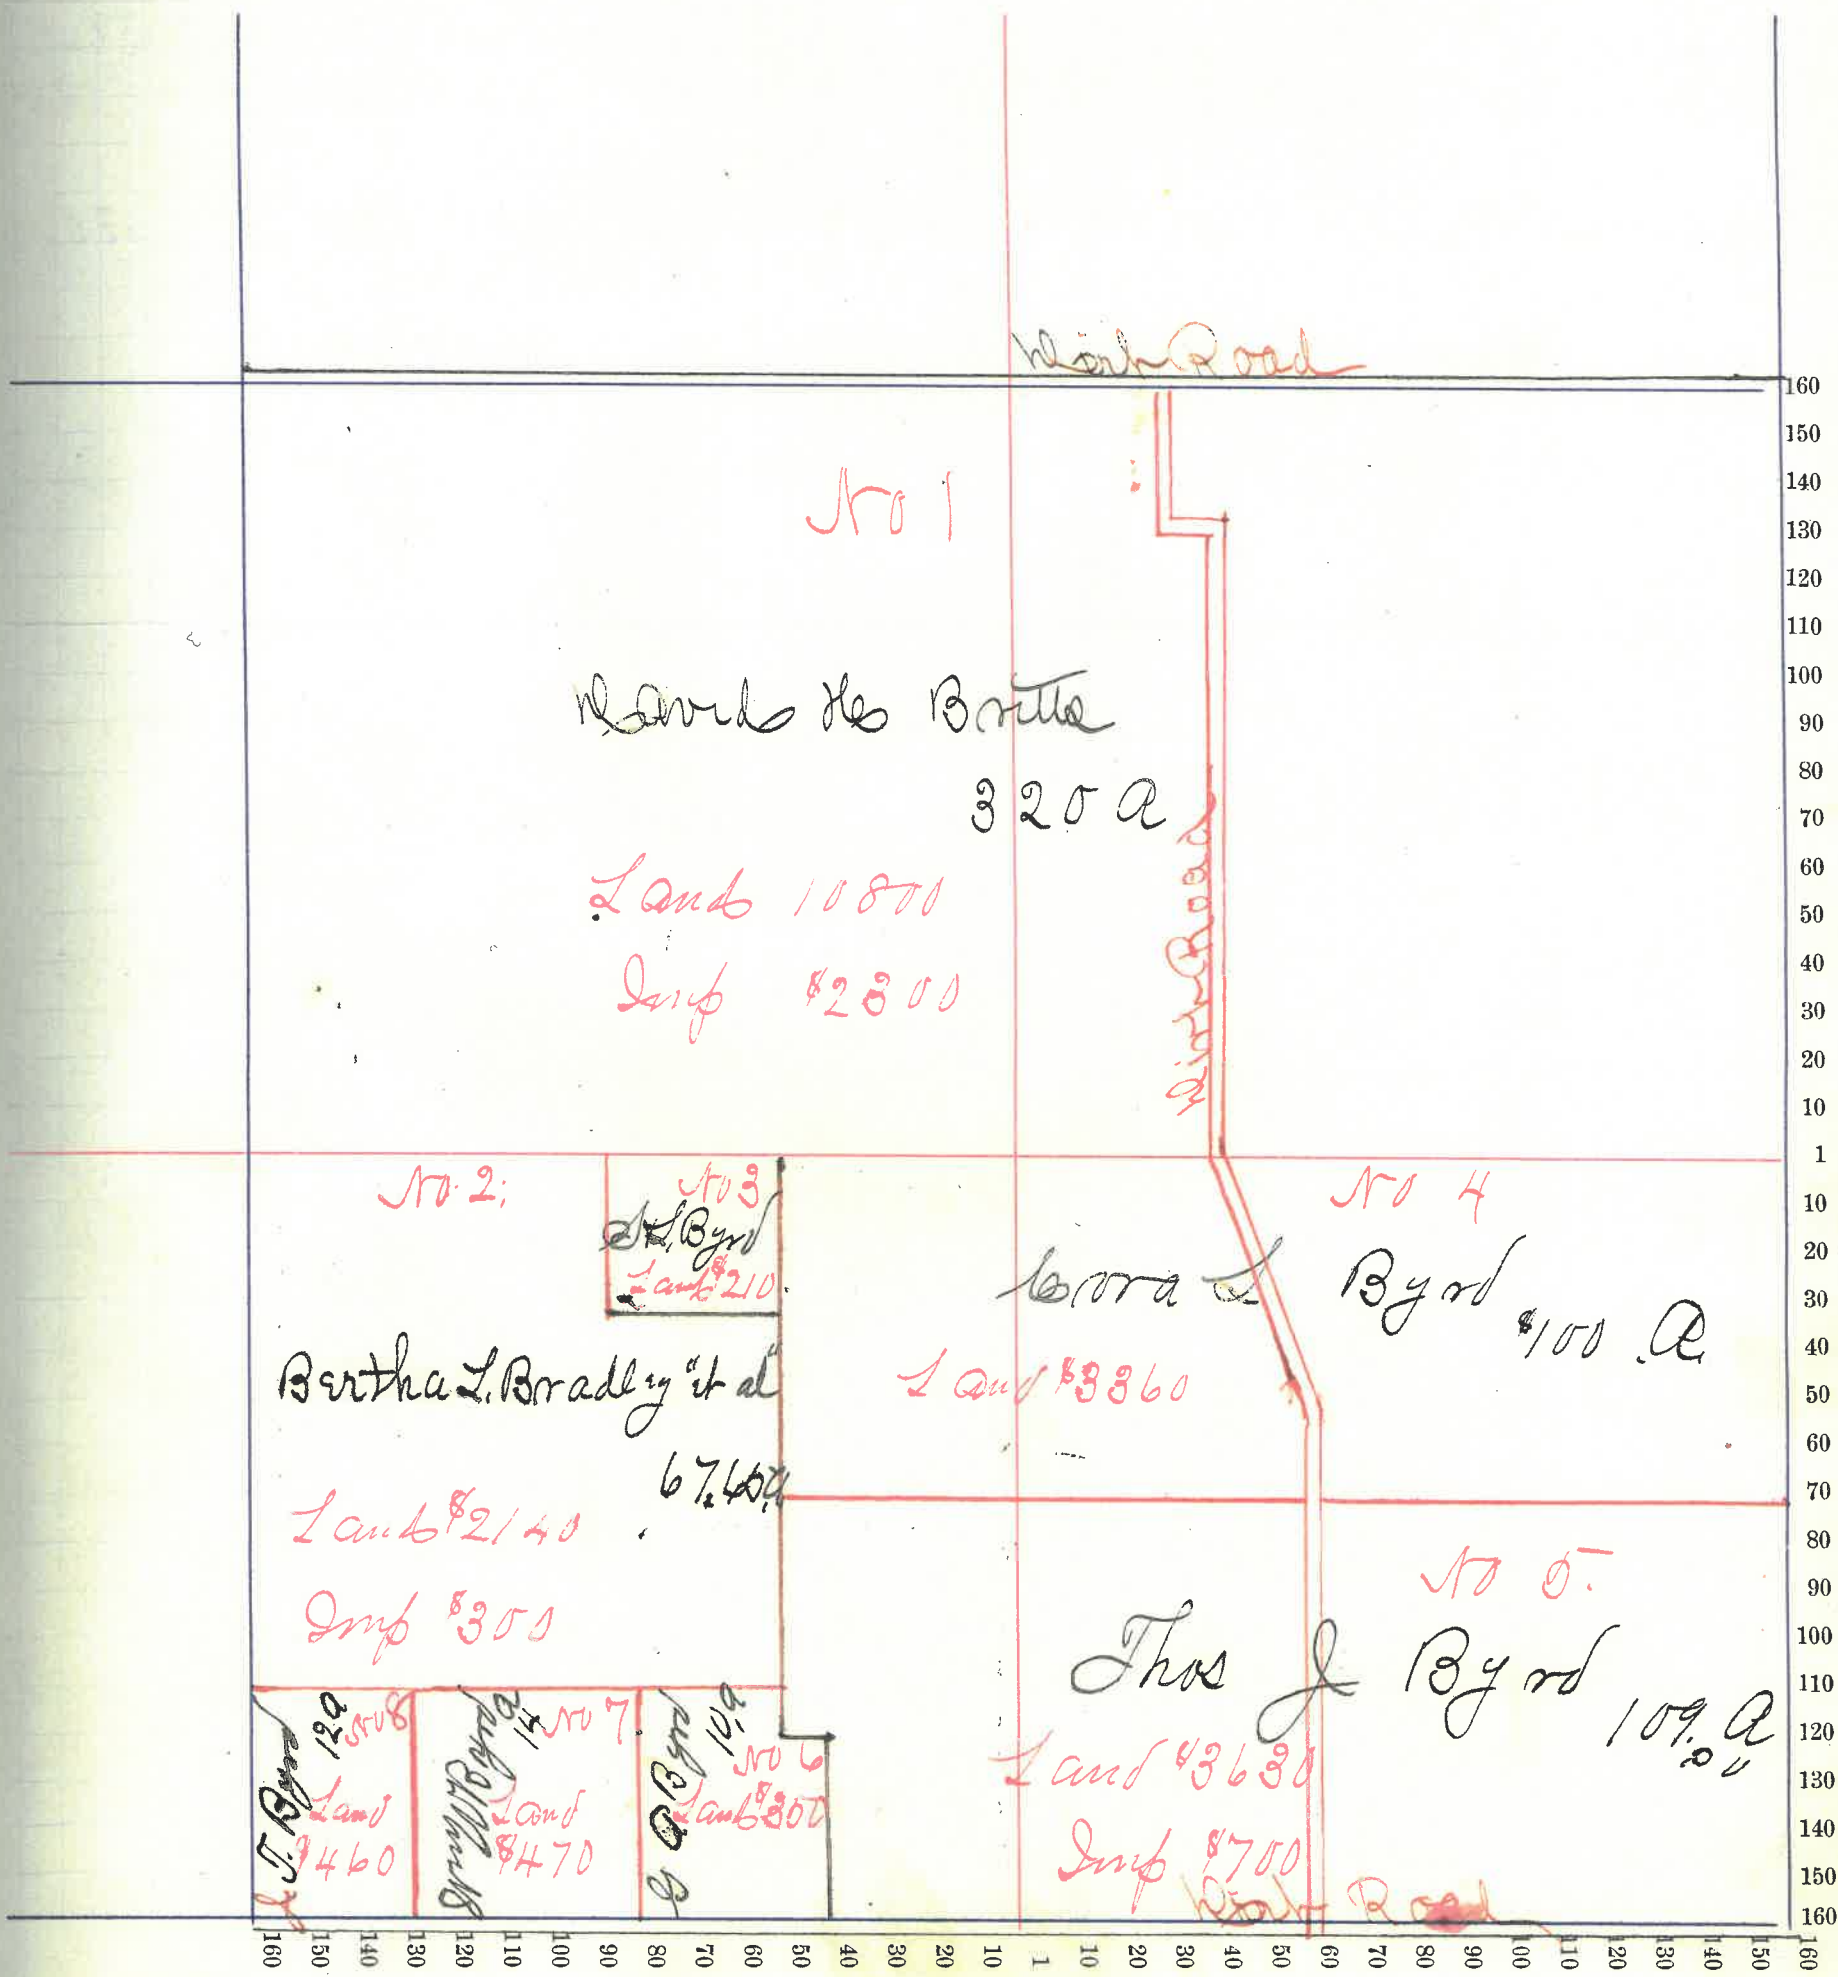 Dirt Road
No 1
David H Britts
320 A
Land 10800
Imp $2300
Dirt Road
No. 2.
Bertha L. Bradley "et al"
Land $2140
Imp $300
No 3
L. Byrd
Land $210
No 4
Cora L Byrd
$100 A.
Land $3360
No 5.
Thos J Byrd
109. A
Land $3630
Imp $700
Dirt Road
No 6
A Byrd
10 a
Land $300
No 7
Byrd
14 a
Land $470
No 8
J. T. Byrd
12 a
Land
$460
160
150
140
130
120
110
100
90
80
70
60
50
40
30
20
10
1
10
20
30
40
50
60
70
80
90
100
110
120
130
140
150
160
160 150 140 130 120 110 100 90 80 70 60 50 40 30 20 10 1 10 20 30 40 50 60 70 80 90 100 110 120 130 140 150 160